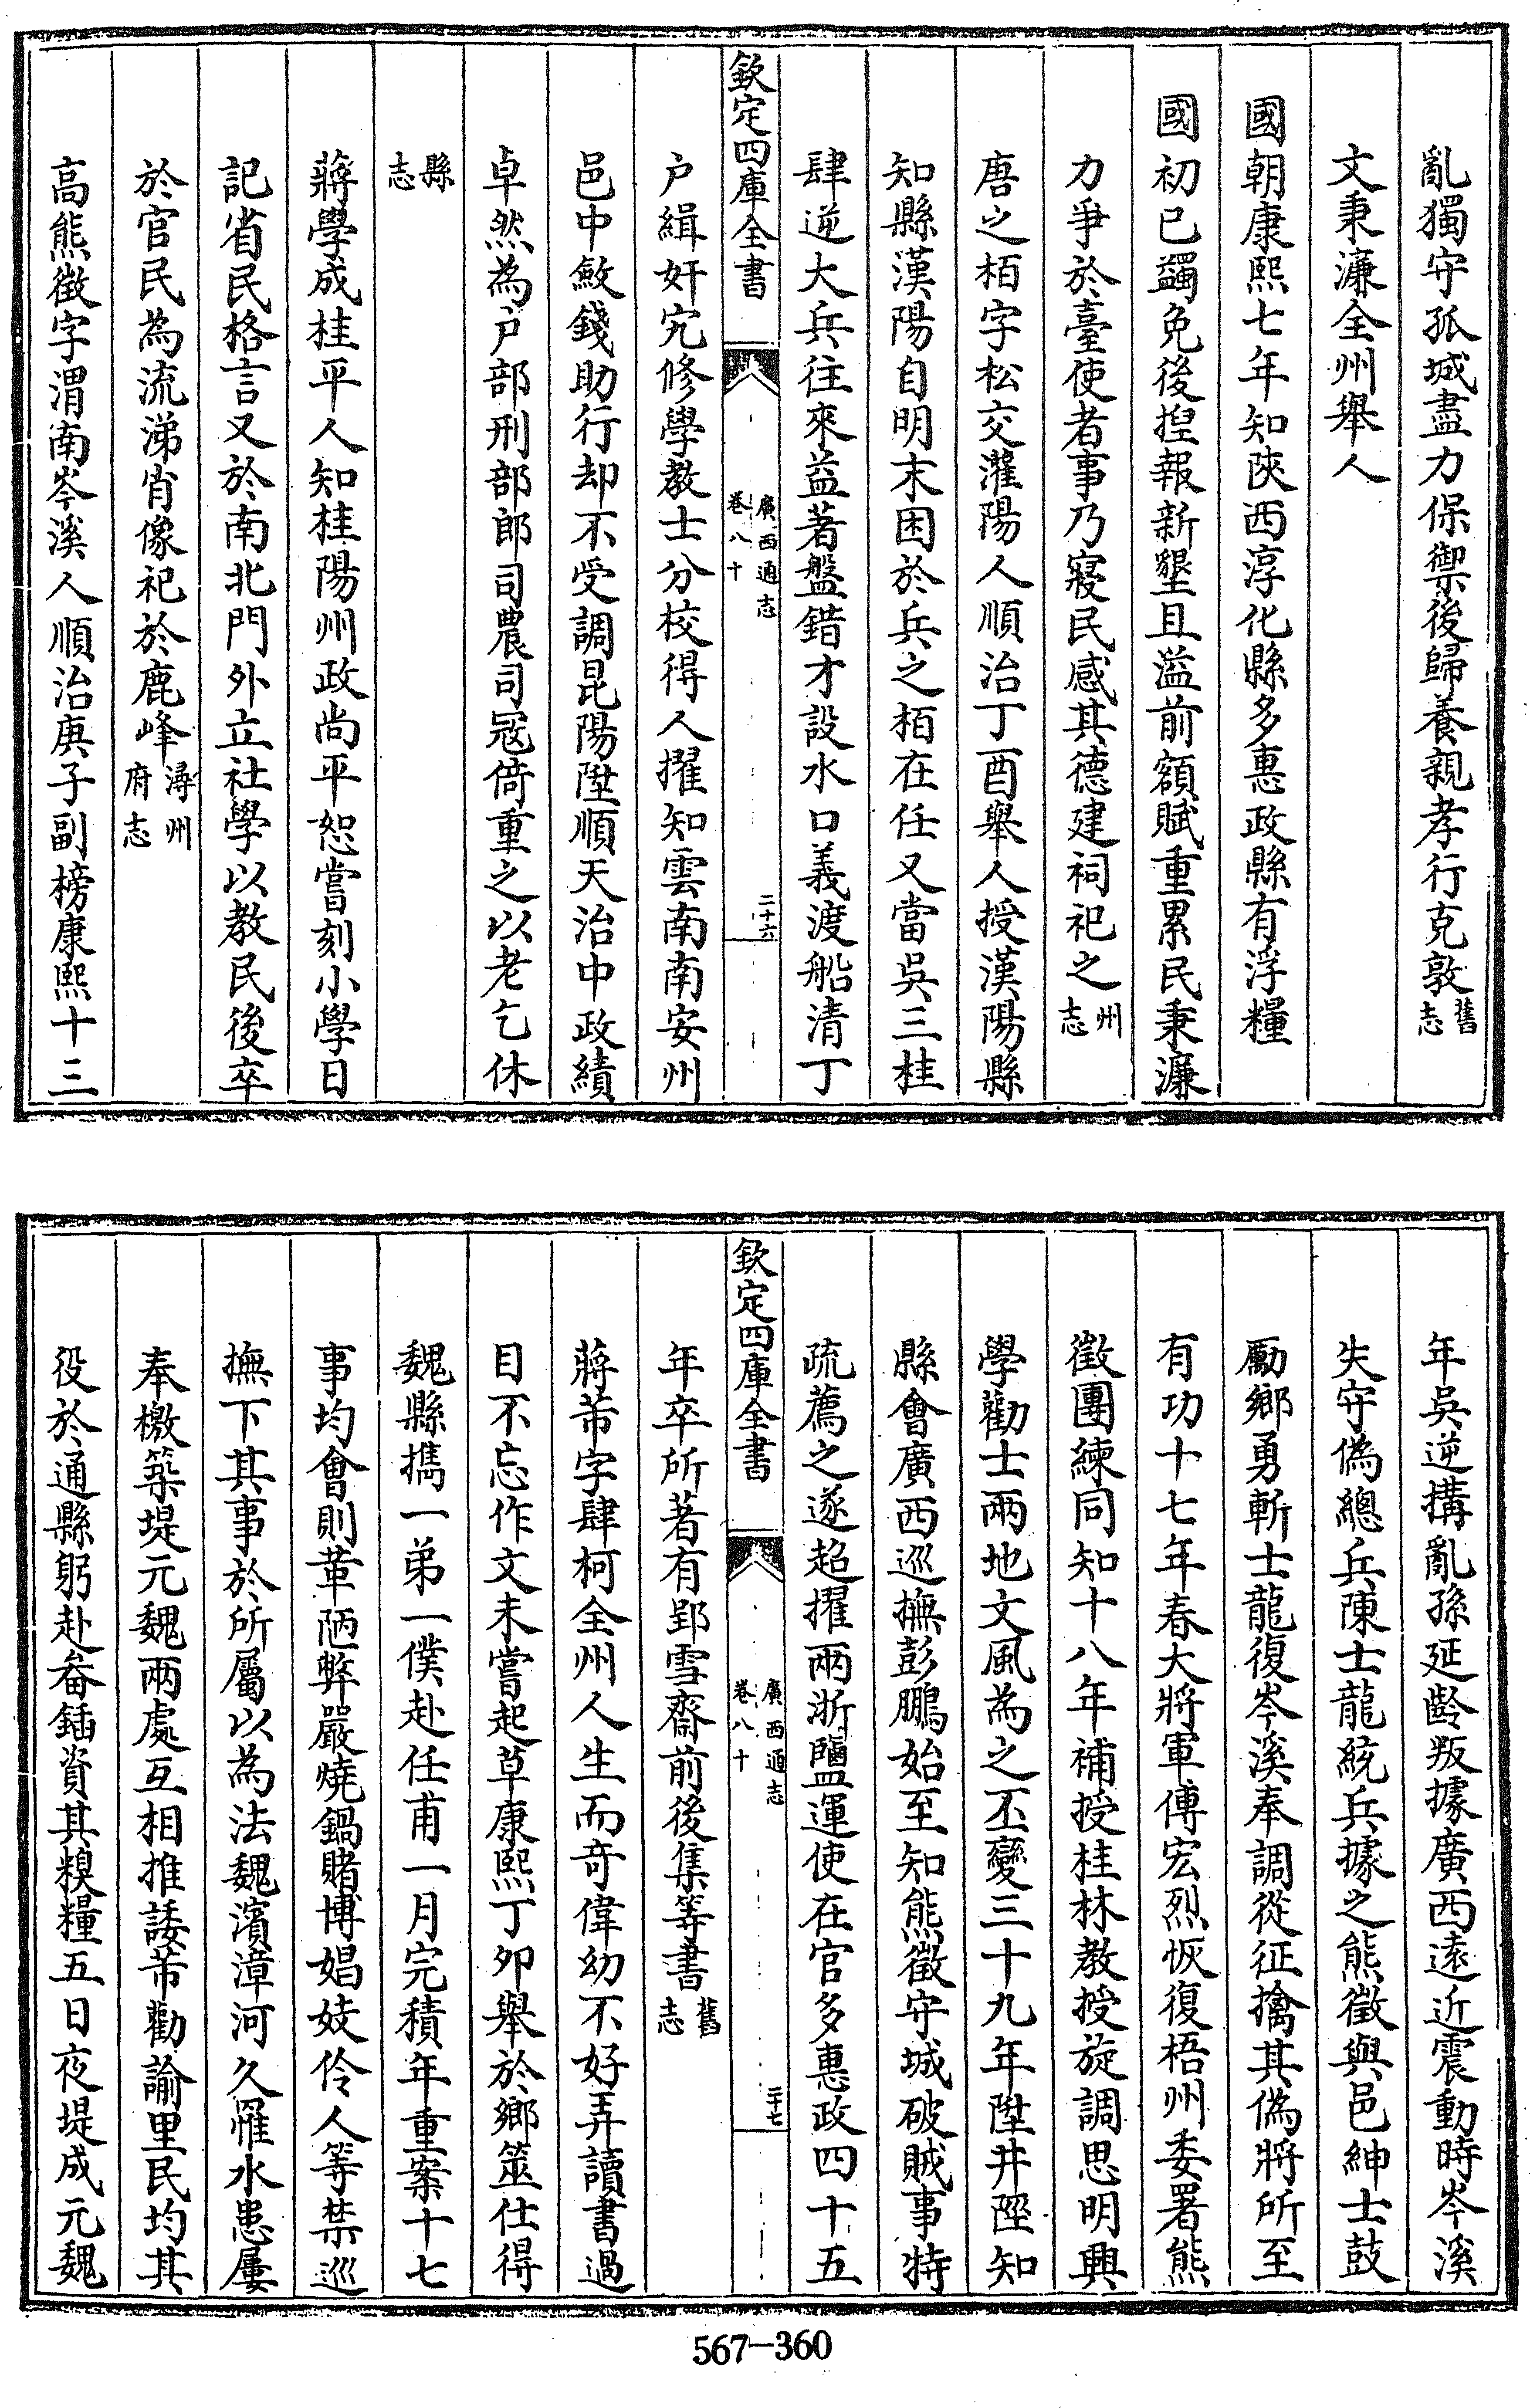 亂獨守孤城盡力保禦後歸養親孝行克敦舊志
文秉濂全州舉人
國朝康熙七年知陝西淳化縣多惠政縣有浮糧
國初已蠲免後捏報新墾且溢前額賦重累民秉濂
力爭於臺使者事乃寢民感其德建祠祀之州志
唐之栢字松交灌陽人順治丁酉舉人授漢陽縣
知縣漢陽自明末困於兵之栢在任又當吳三桂
肆逆大兵往來益著盤錯才設水口義渡船清丁
欽定四庫全書
廣西通志
卷八十
二十六
户緝奸宄修學教士分校得人擢知雲南南安州
邑中斂錢助行却不受調昆陽陞順天治中政績
卓然為户部刑部郎司農司寇倚重之以老乞休
縣志
蔣學成桂平人知桂陽州政尚平恕嘗刻小學日
記省民格言又於南北門外立社學以教民後卒
於官民為流涕肖像祀於鹿峰潯州府志
高熊徵字渭南岑溪人順治庚子副榜康熙十三
年吳逆搆亂孫延齡叛據廣西遠近震動時岑溪
失守偽總兵陳士龍統兵據之熊徵與邑紳士鼓
勵鄉勇斬士龍復岑溪奉調從征擒其偽將所至
有功十七年春大將軍傅宏烈恢復梧州委署熊
徵團練同知十八年補授桂林教授旋調思明興
學勸士兩地文風為之丕變三十九年陞井陘知
縣會廣西巡撫彭鵬始至知熊徵守城破賊事特
疏薦之遂超擢兩浙鹽運使在官多惠政四十五
欽定四庫全書
廣西通志
卷八十
二十七
年卒所著有郢雪齋前後集等書舊志
蔣芾字肆柯全州人生而奇偉幼不好弄讀書過
目不忘作文未嘗起草康熙丁卯舉於鄉筮仕得
魏縣攜一弟一僕赴任甫一月完積年重案十七
事均會則革陋弊嚴燒鍋賭博娼妓伶人等禁巡
撫下其事於所屬以為法魏濱漳河久罹水患屢
奉檄築堤元魏兩處互相推諉芾勸諭里民均其
役於通縣躬赴畚鍤資其糗糧五日夜堤成元魏
567-360